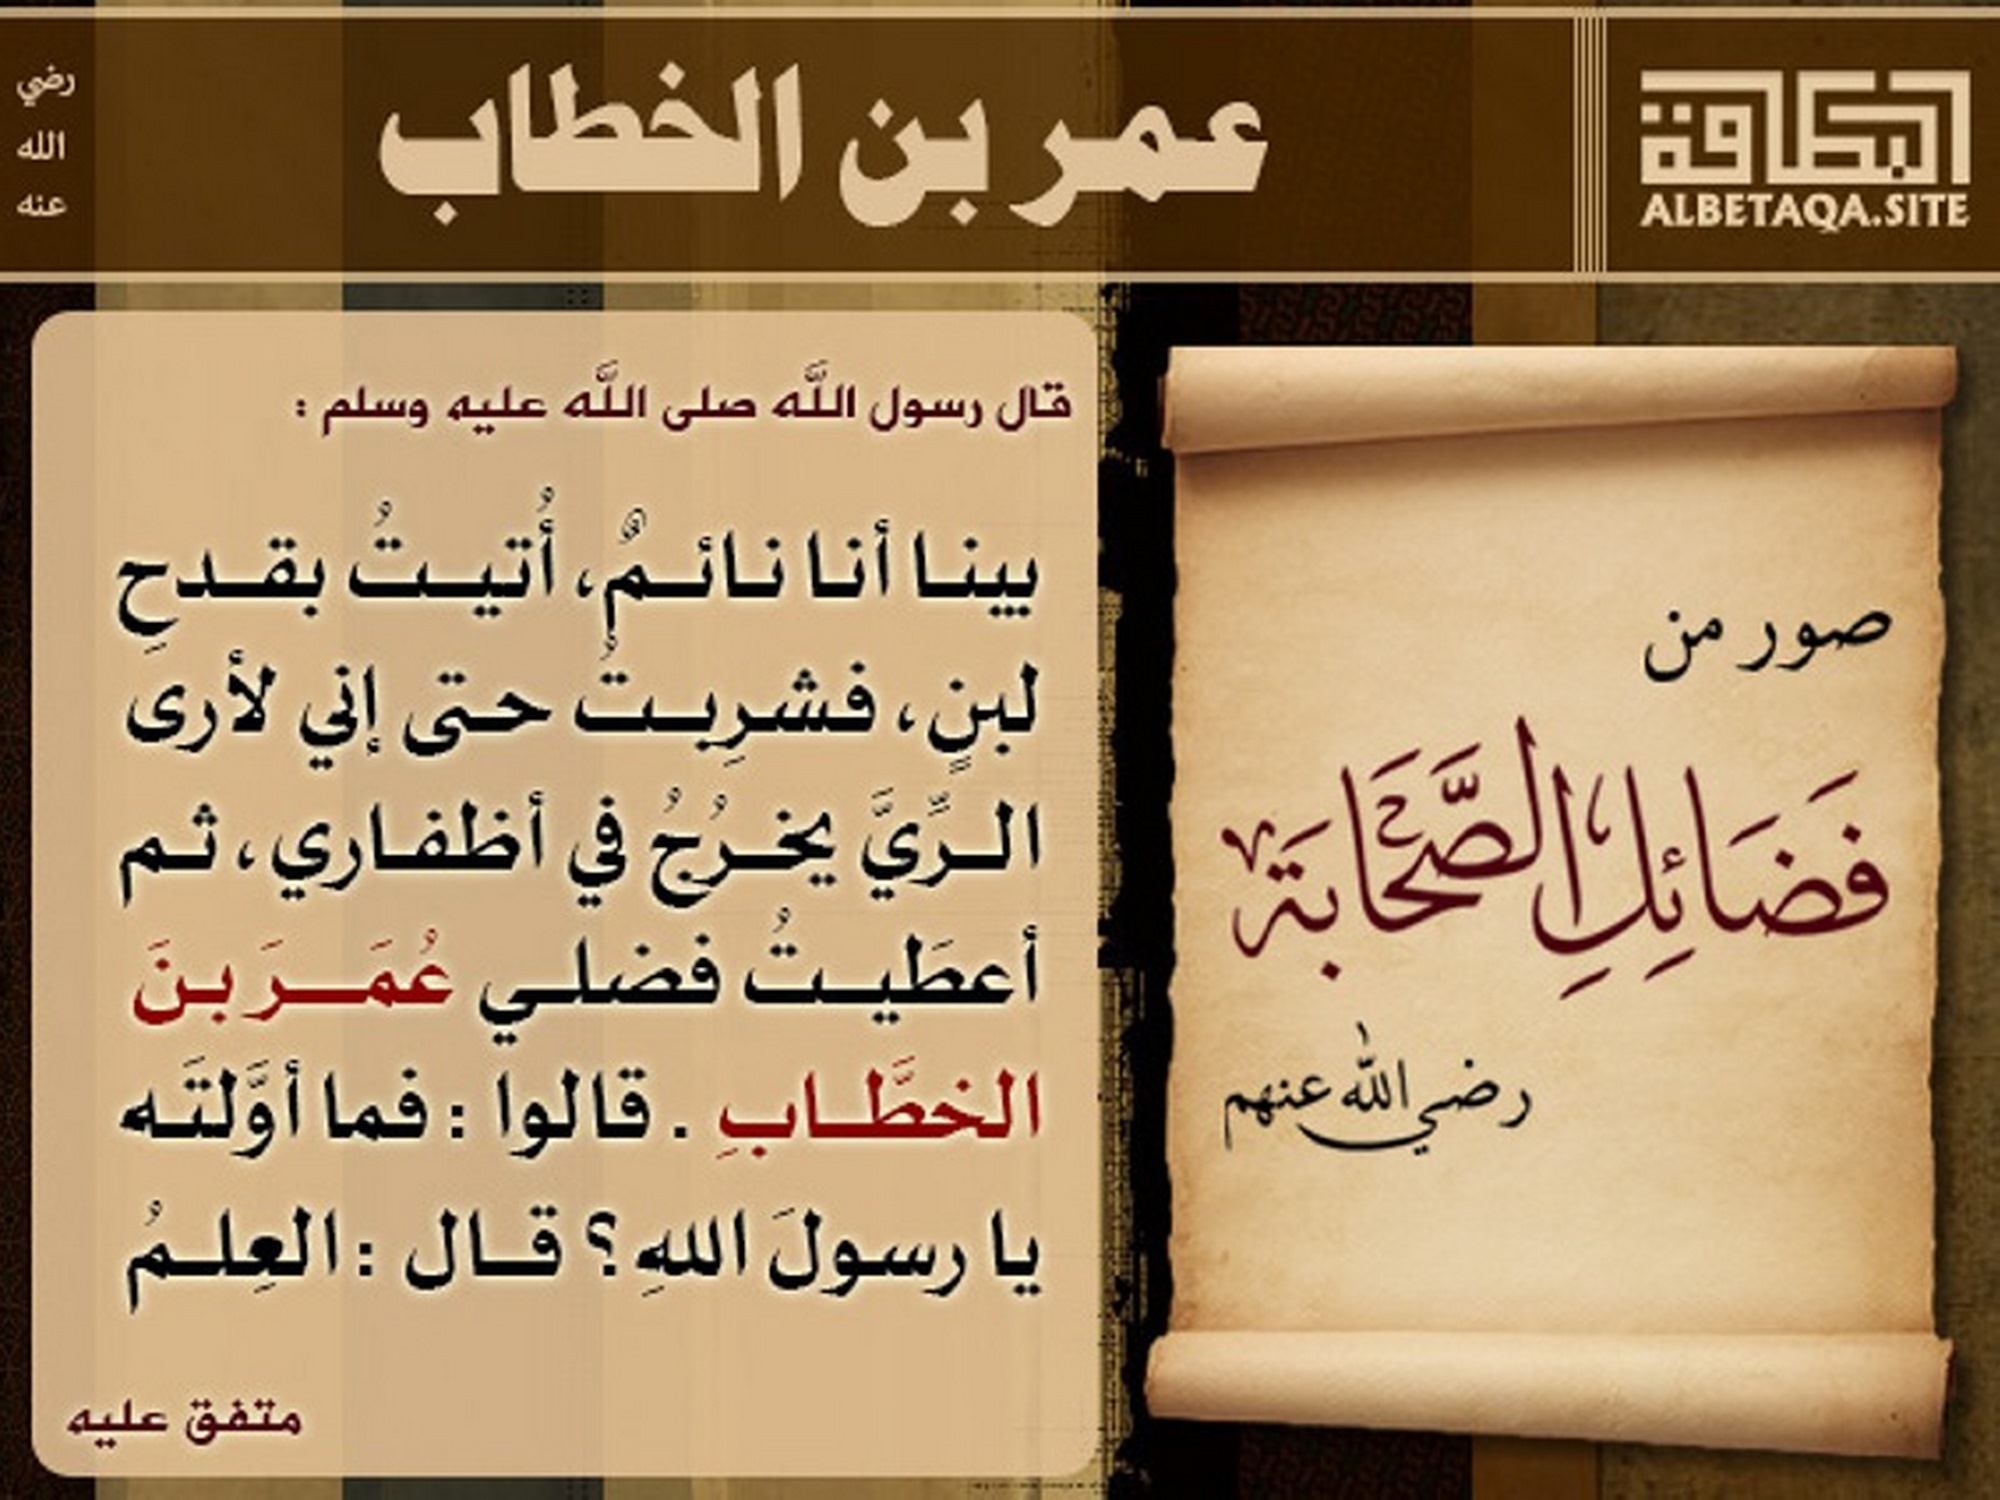 البطاقة
ALBETAQA.SITE
عمر بن الخطاب
رضي
الله
عنه
صور من
فَضَائِلِ الصَّحَابَةِ
رضي الله عنهم
قال رسول اللَّه صلى اللَّه عليه وسلم :
بينا أنا نائمٌ، أُتيتُ بقدحِ
لبنٍ، فشرِبتُ حتى إني لأرى
الرِّيَّ يخرُجُ في أظفاري، ثم
أعطَيتُ فضلي عُمَرَ بنَ
الخطَّابِ . قالوا : فما أوَّلتَه
يا رسولَ اللهِ؟ قال : العِلمُ
متفق عليه